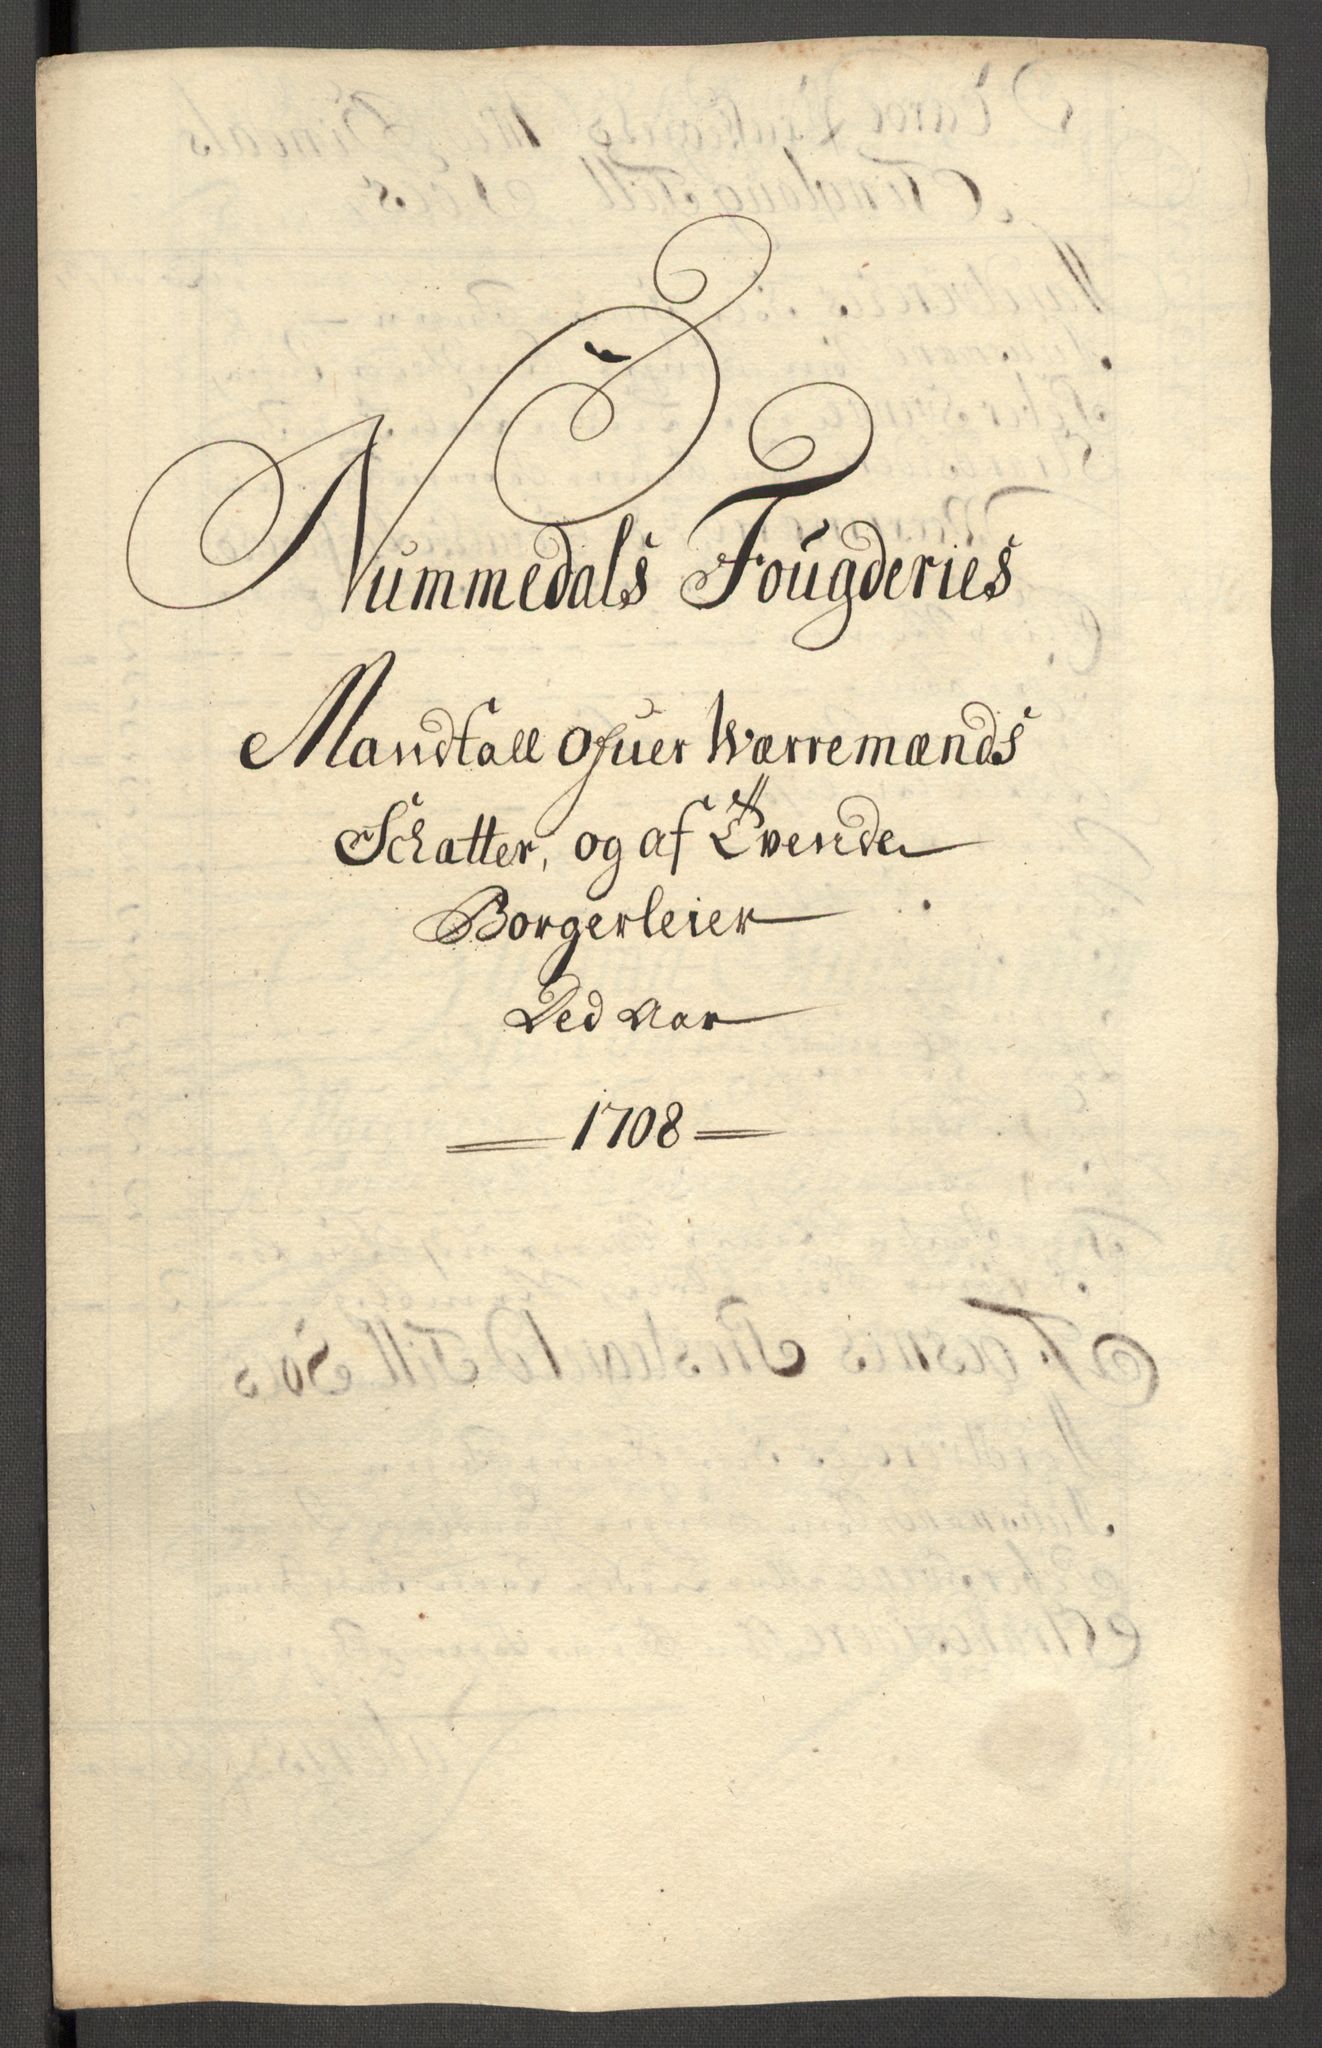 Nummedals Fougderies
Mandtall ofuer Wærremænds
Schatter, og af Evende
Borgerleier
Ded Aar
1708